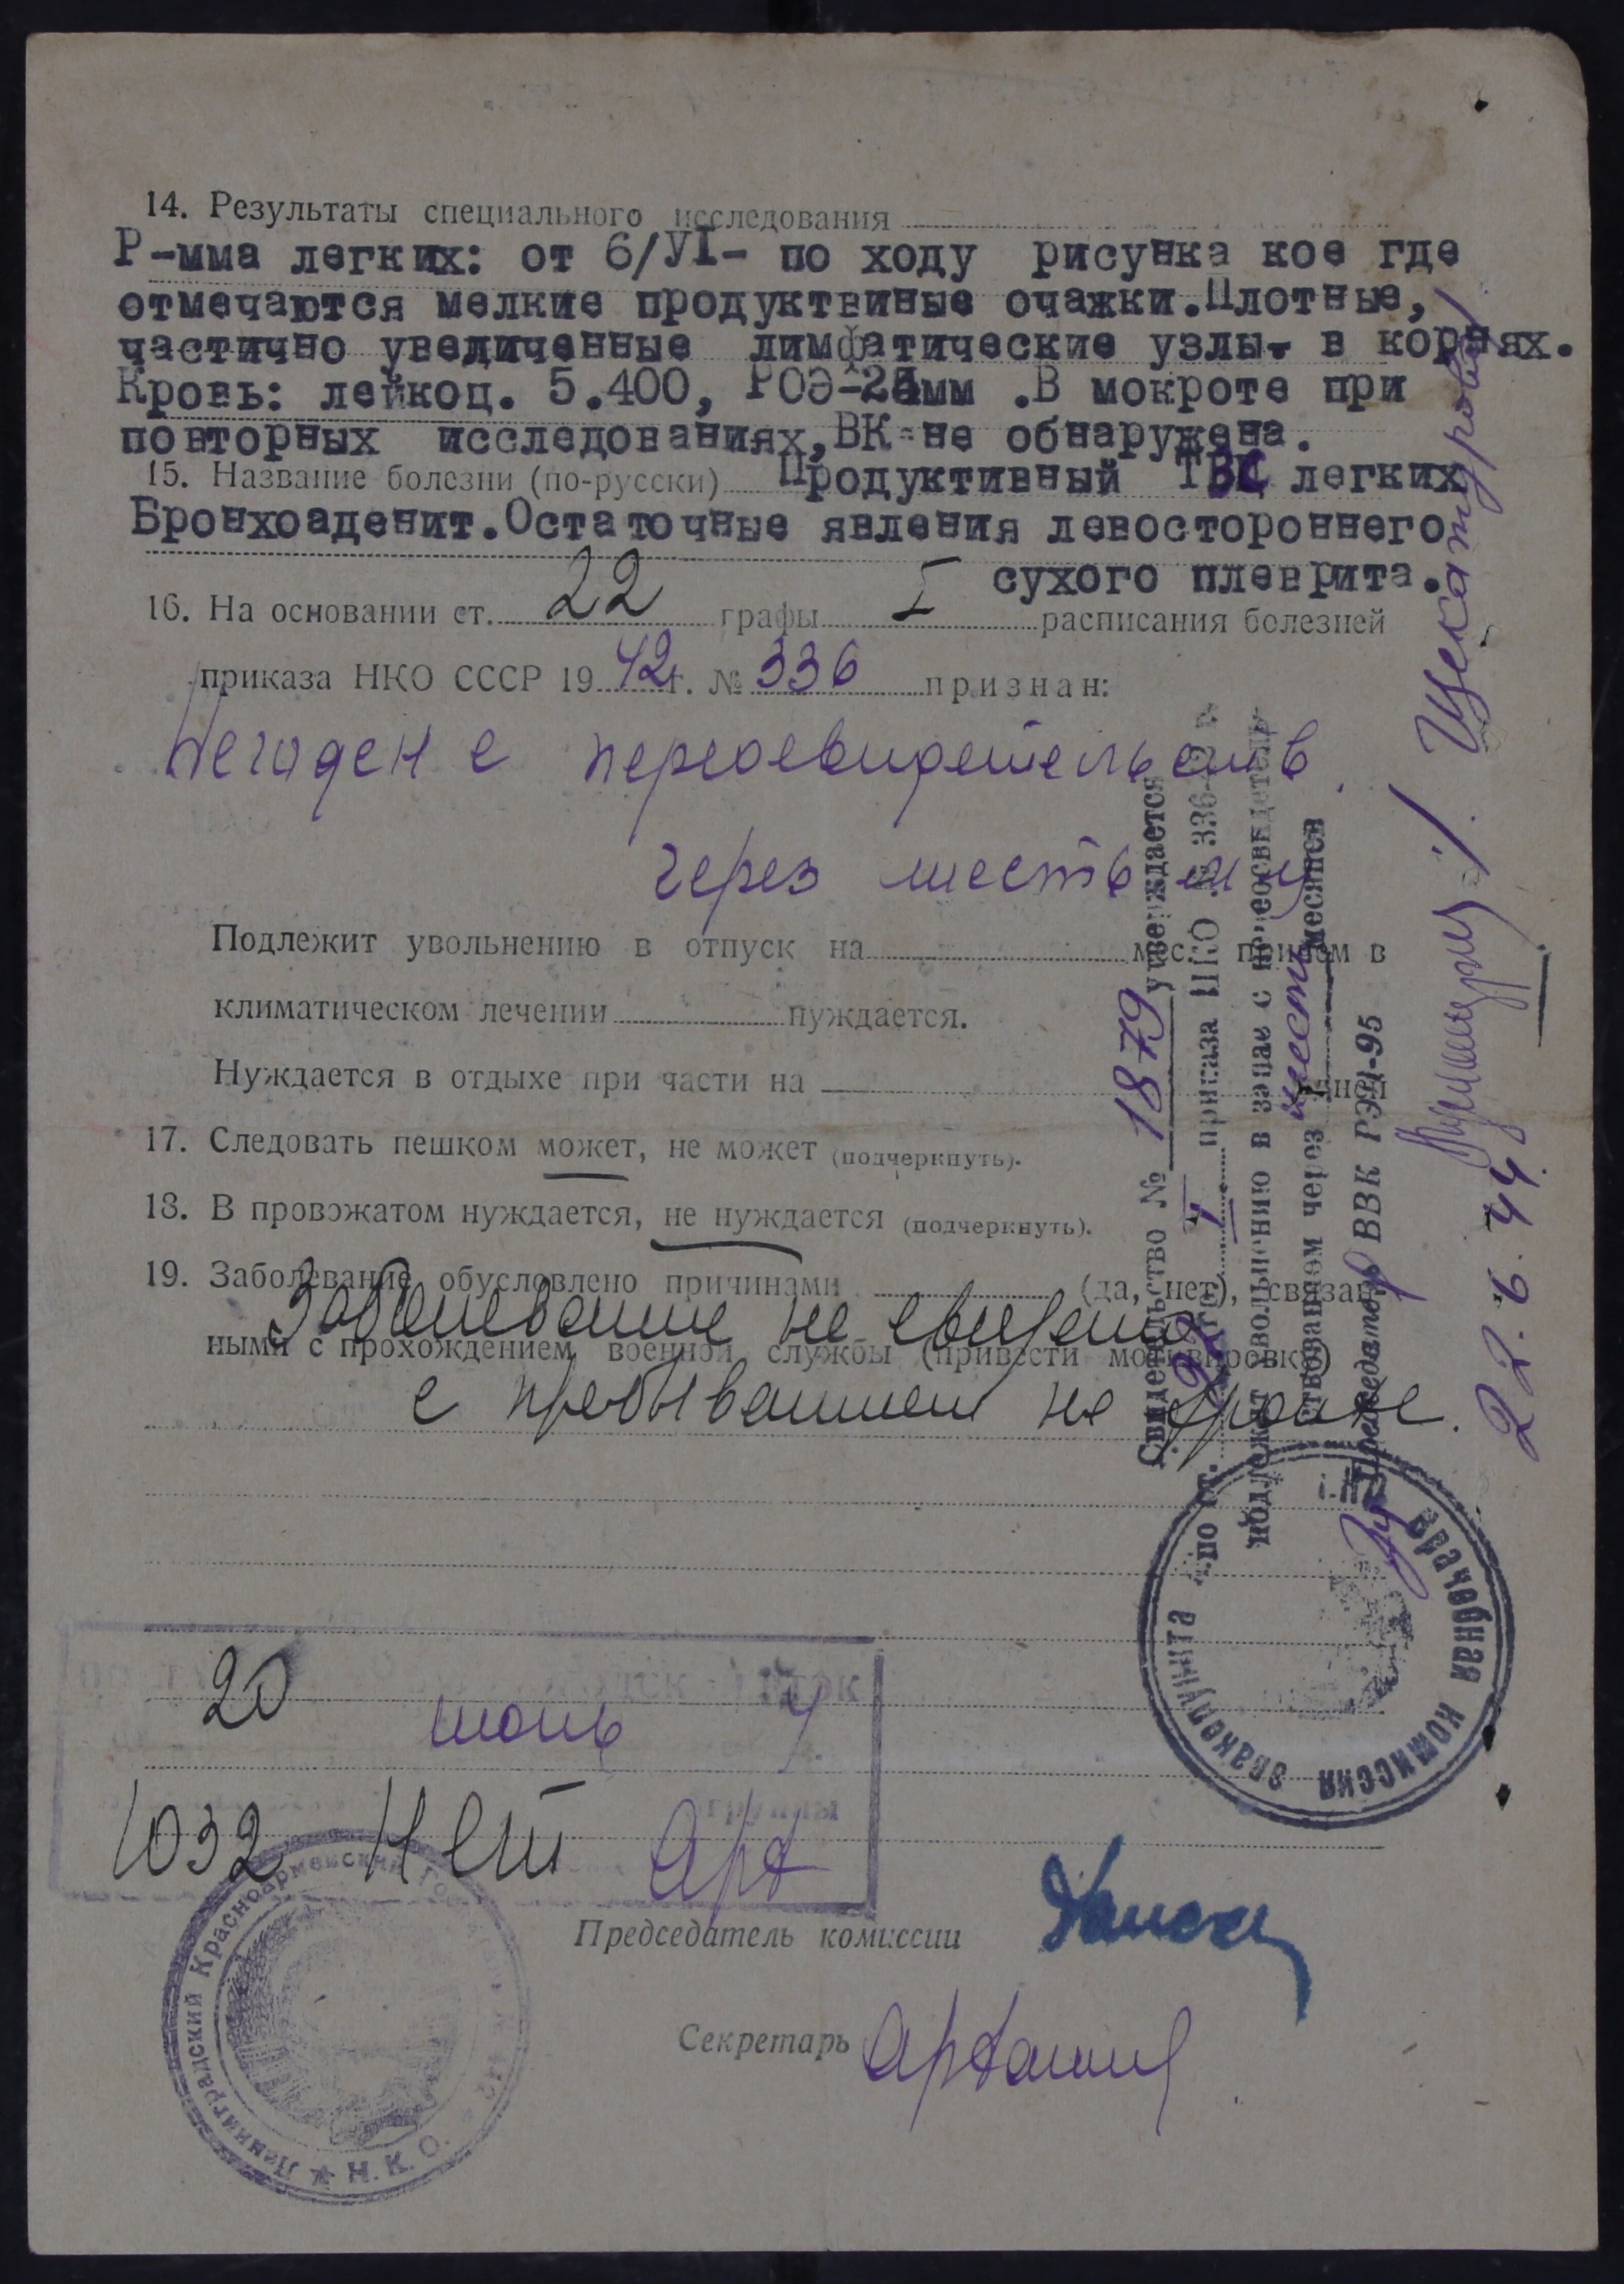 14. Результаты специального исследования
Р-мма легких: от 6/УІ- по ходу рисунка кое где
отмечаются мелкие продуктвиные очажки.Плотные,
частично увеличенные лимфатические узлы- в корнях.
Кровь: лейкоц. 5.400, РОЭ- мм .В мокроте при
повторных исследованиях,ВК-не обнаружена.
15. Название болезни (по-русски) Продуктивный ТВС легких
Бронхоаденит.Остаточные явления левостороннего
сухого плеврита.
16. На основании ст. 22 графы I расписания болезней
приказа НКО СССР 19 42 г. № 336 признан:
Негоден с переосвидетельств.
через шесть
Подлежит увольнению в отпуск на мес. причем в
климатическом лечении нуждается.
Нуждается в отдыхе при части на дней
17. Следовать пешком может, не может (подчеркнуть).
18. В провожатом нуждается, не нуждается (подчеркнуть).
19. Заболевание обусловлено причинами (да, нет), связан-
Заболевание не связано
ными с прохождением военной службы (привести мотивировку)
с пребыванием на фронте.
20 июнь 4
1032 Нет Арб
Председатель комиссии
Секретарь
Ленинградский Красноармейский
Н.К.О.
Свидетельство № 1879 утверждается
по ст. 22 I приказа НКО № 336-42 г.
подлежит увольнению в запас с переосвидетель-
ствованием через шесть месяцев
Председатель ВВК РЭП-95
22.6.44
врачебная комиссия эвакопункта